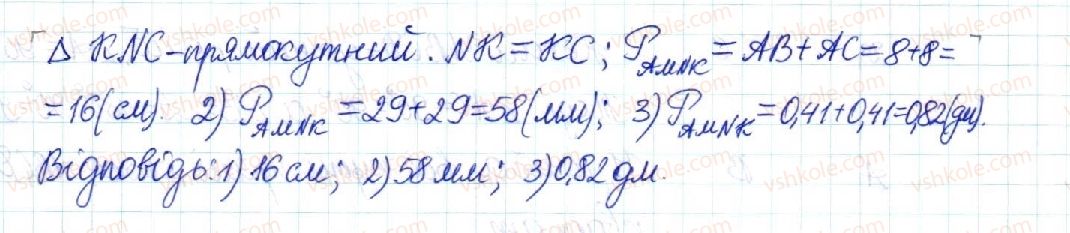 Δ KNC - прямокутний. NK = KC; P_AMNK = AB + AC = 8+8=
= 16 (см). 2) P_AMNK = 29+29=58 (мм); 3) P_AMNK = 0,41+0,41=0,82 (дм).
Відповідь: 1) 16 см; 2) 58 мм; 3) 0,82 дм.